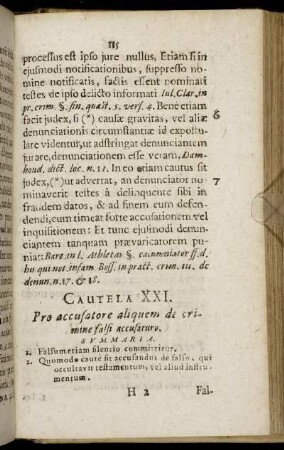 115
processus est ipso jure nullus, Etiam si in
ejusmodi notificationibus, suppresso no-
mine notificatis, factis essent nominati
testes de ipso delicto informati Iul. Clar. in
pr. crim. §. fin. quæst. 5. vers. 4. Bene etiam
facit judex, si (*) causæ gravitas, vel aliæ 6
denunciationis circumstantiæ id expostu-
lare videntur, ut adstringat denunciantem
jurare, denunciationem esse veram, Dam-
houd. dict. loc. n. 11. In eo etiam cautus sit
judex, (*) ut advertat, an denunciator no- 7
minaverit testes à delinquente sibi in
fraudem datos, & ad finem eum defen-
dendi, cum timeat forte accusationem vel
inquisitionem: Et tunc ejusmodi denun-
ciantem tanquam prævaricatorem pu-
niat: Bart. in l. Athletas §. calumniator ff. d.
his qui not. infam. Boss. in pract. crim. tit. de
denun. n. 17. & 18.
CAUTELA XXI.
Pro accusatore aliquem de cri-
mine falsi accusaturo.
SUMMARIA.
1. Falsum etiam silencio committitur.
2. Quomodo cautè sit accusandus de falso, qui
occultavit testamentum, vel aliud instru-
mentum.
H 2 Fal-